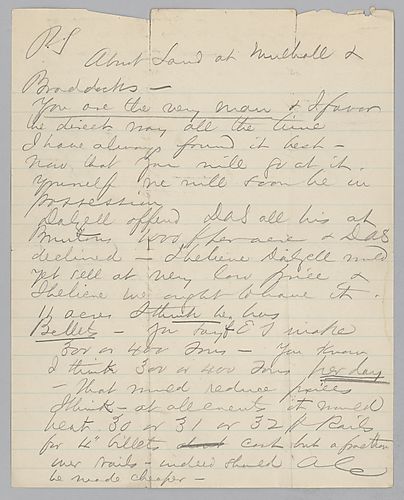 P.S
About Land at Munhall &
Braddocks —
You are the very man & I favor
the direct way all the time
I have always found it best —
Now that you will go at it
yourself we will soon be in
possession
Dalzell offered DAS all his at
1000 $ per acre & DAS
declined — I believe Dalzell would
yet sell at very low price &
I believe we ought to have it.
14 acres I think he has
Billets — you say E T make
300 or 400 Tons — You know
I think 300 or 400 Tons per day
— That would reduce prices
I think — at all events it would
beat 30 or 31 or 32 $ Rails
for 4" billets cost but a fraction
over rails — indeed should
be made cheaper —
AC